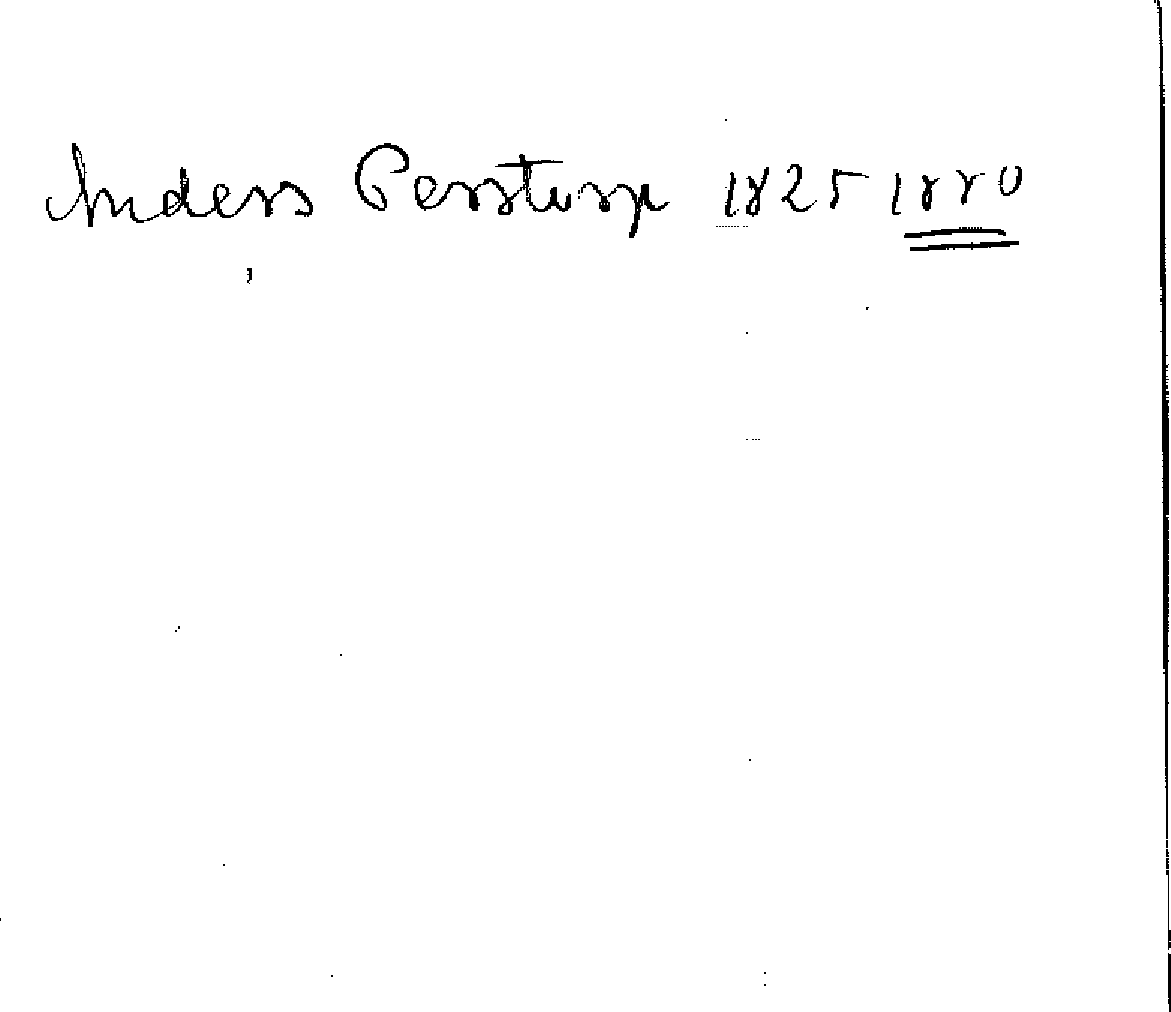 Anders Perstorp 1825 1880